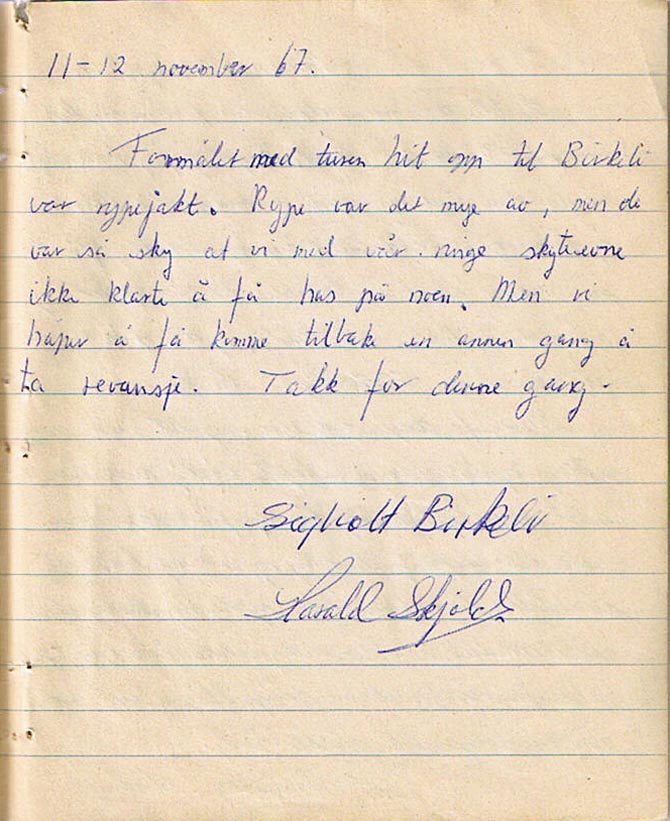 11-12 november 67.
Formålet med turen hit opp til Birkeli
var rypejakt. Rype var det mye av, men de
var så sky at vi med vår ringe skyteevne
ikke klarte å få has på noen. Men vi
håper å få komme tilbake en annen gang å
ta revansje. Takk for denne gang.
Birkeli
Harald Skjold